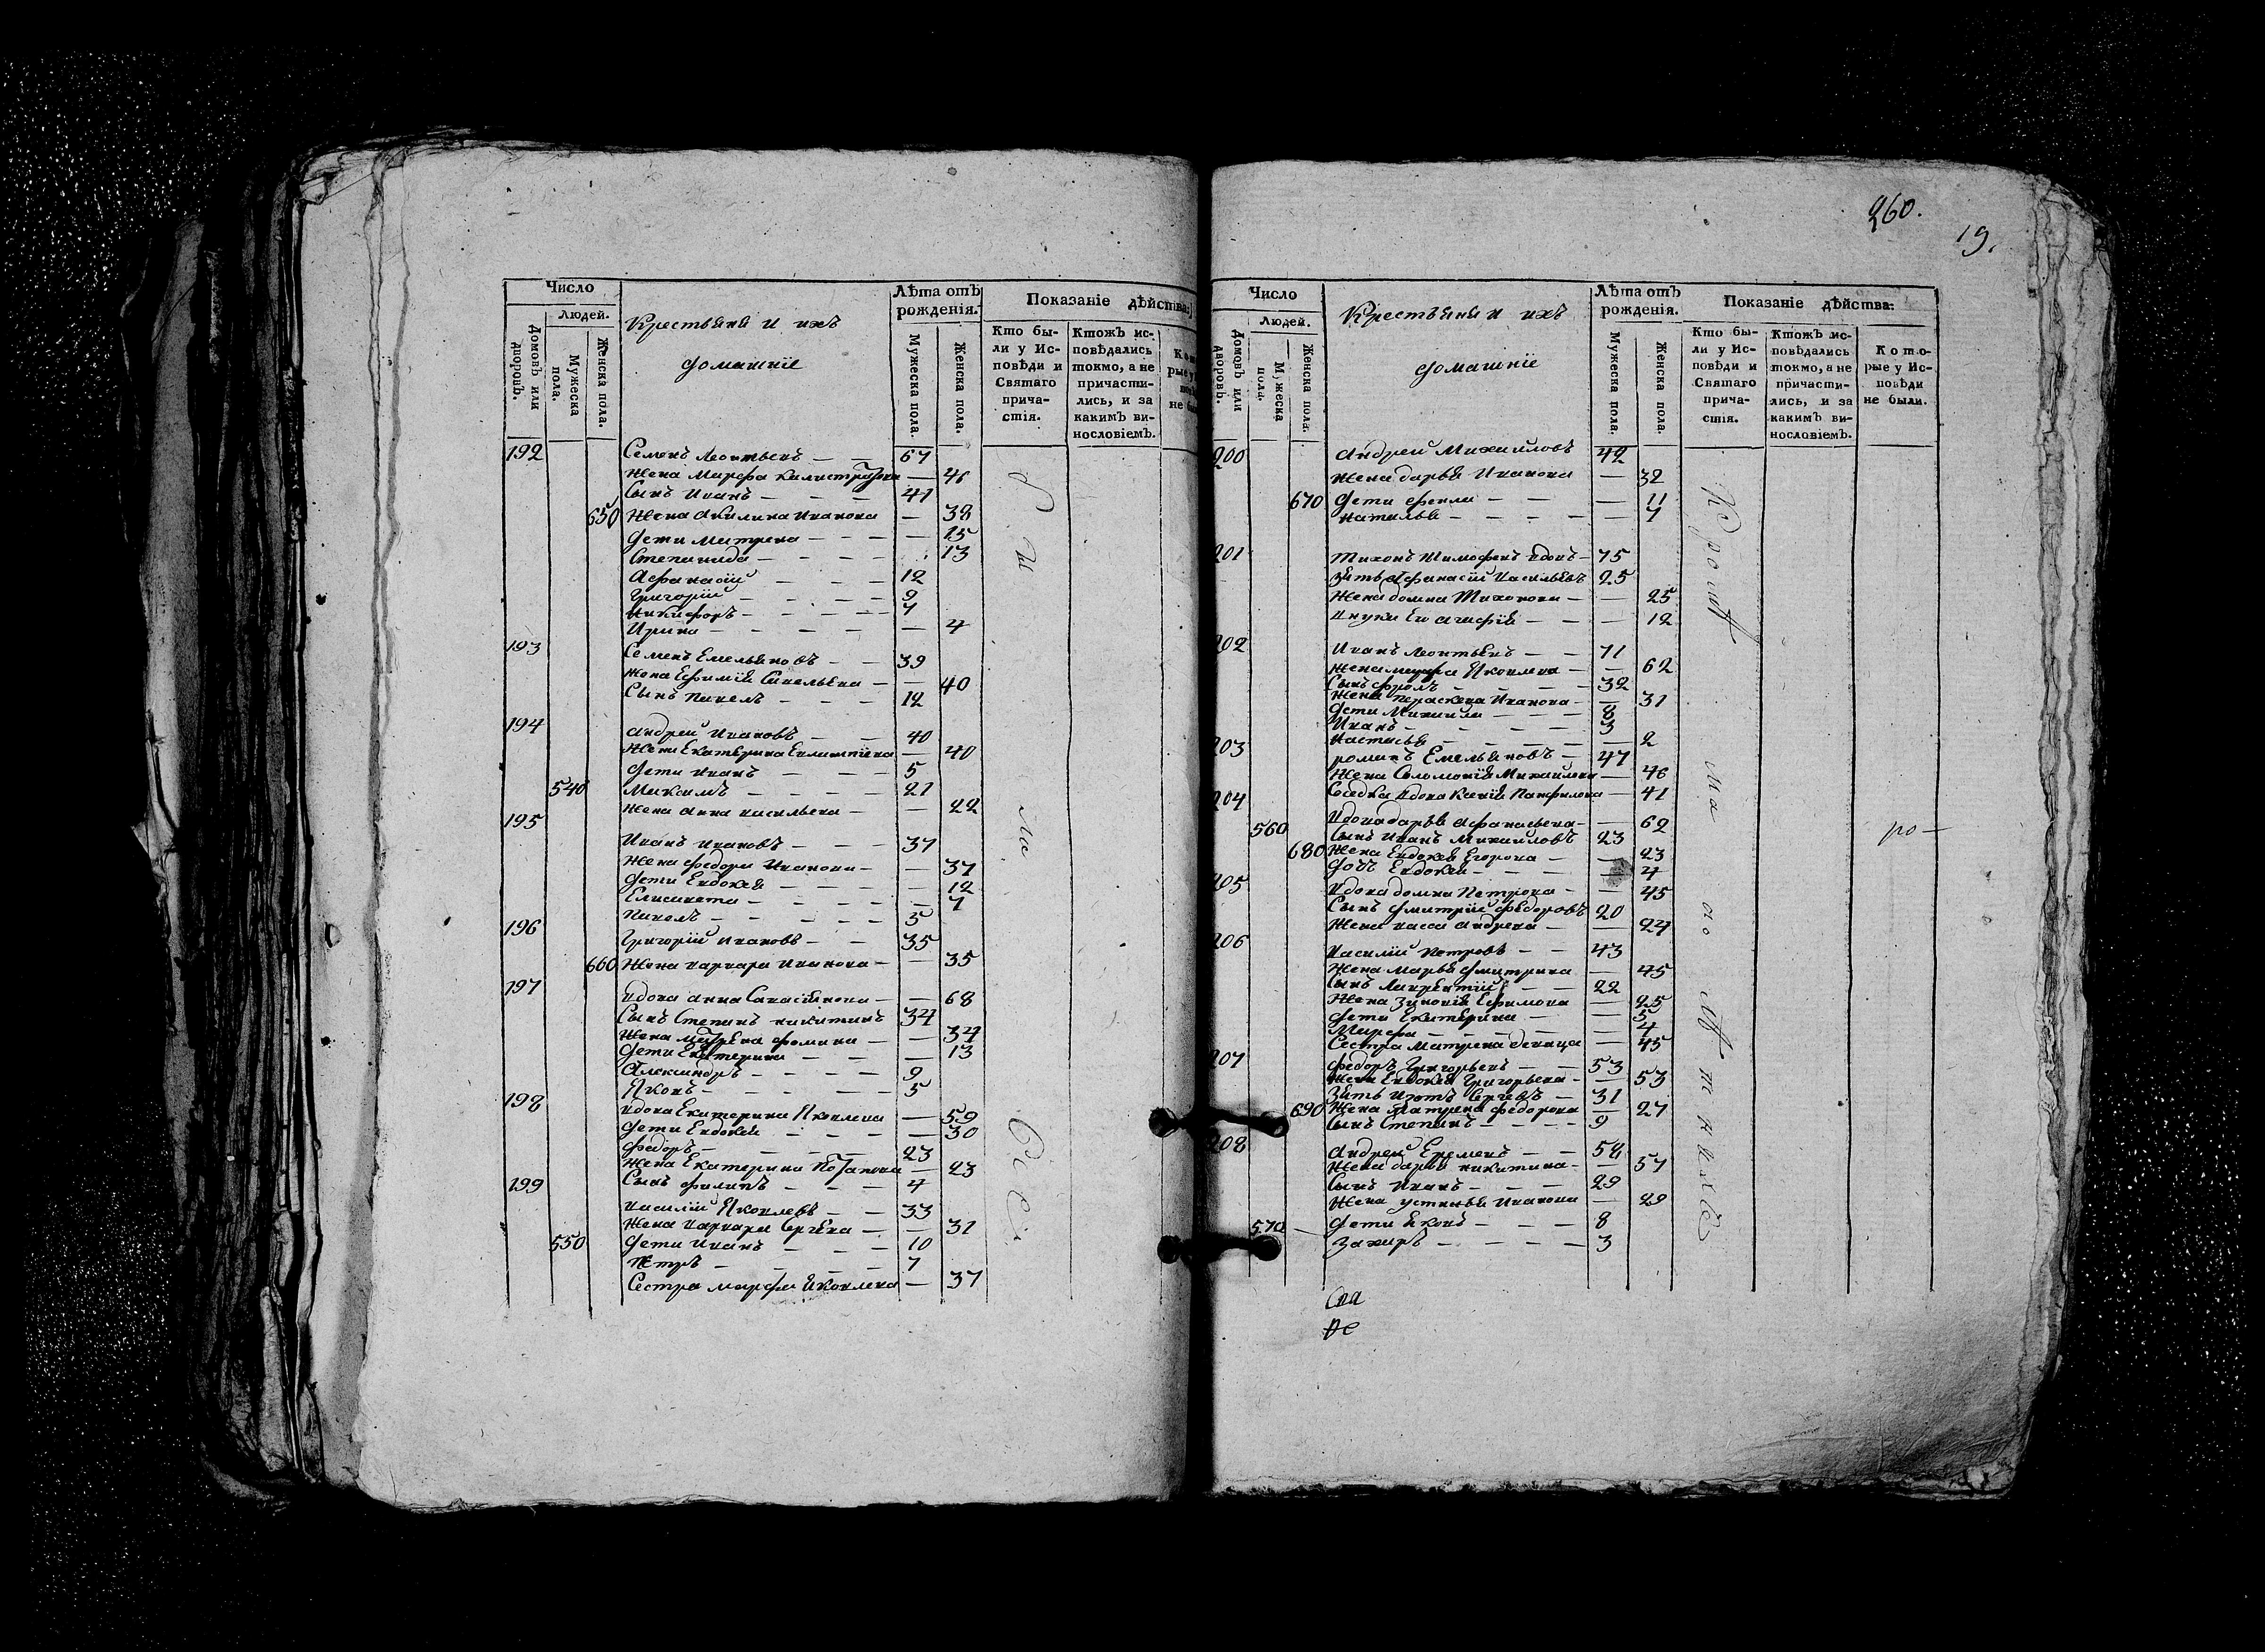 260.
19.
Число
Людей.
Домовъ или дворовъ.
Мужеска пола.
Женска пола.
Крестьяня и ихъ
домашніе
Лѣта отъ рожденія.
Мужеска пола.
Женска пола.
Показаніе дѣйства:
Кто бы-
ли у Ис-
повѣди и
Святаго
прича-
стія.
Ктожъ ис-
повѣдались
токмо, а не
причасти-
лись, и за
какимъ ви-
нословіемъ.
192 Семенъ Леонтьевъ — — 67
Жена Марфа Калистратова — 46
Сынъ Иванъ — — — 41
650 Жена Акилина Иванова — 38
Дети Матрена — — — 15
Степанида — — — 13
Афанасій — — — 12
Григорій — — — 9
Никифоръ — — — 7
Ирина — — — 4
193 Семенъ Емельяновъ — — 39
Жена Ефимія Савельева — — 40
Сынъ Павелъ — — — 12
194 Андрей Ивановъ — — 40
Жена Екатерина — 40
Дети Иванъ — — — 5
540 Максимъ — — — 21
Жена Анна Васильева — — 22
195 Иванъ Ивановъ — — — 37
Жена Федора Иванова — — 37
Дети Евдокея — — — 12
Елисавета — — — 7
Павелъ — — — 5
196 Григорій Ивановъ — — 35
660 Жена Варвара Иванова — — 35
197 Вдова Анна — — 68
Сынъ Степанъ Никитинъ 34
Жена Матрена Фомина — — 34
Дети Екатерина — — — 13
Александръ — — — 9
Яковъ — — — 5
198 Вдова Екатерина Яковлева — 59
Дети Евдокея — — — 30
Федоръ — — — 23
Жена Екатерина Потапова — 23
Сынъ Филипъ — — — 4
199 Василій Яковлевъ — — 33
Жена Варвара Сергеева — — 31
550 Дети Иванъ — — — 10
Петръ — — — 7
Сестра Марфа Яковлева — 37
Число
Людей.
Домовъ или дворовъ.
Мужеска пола.
Женска пола.
Крестьяня и ихъ
домашніе
Лѣта отъ рожденія.
Мужеска пола.
Женска пола.
Показаніе дѣйства:
Кто бы-
ли у Ис-
повѣди и
Святаго
прича-
стія.
Ктожъ ис-
повѣдались
токмо, а не
причасти-
лись, и за
какимъ ви-
нословіемъ.
Кото-
рые у Ис-
повѣди
не были.
200 Андрей Михайловъ 42
Жена Дарья Иванова — 32
670 Дети Фекла — — — 11
Наталья — — — 7
201 Тихонъ Тимофеевъ вдовъ — 75
Зять Афанасій Васильевъ 25
Жена Домна Тихонова — — 25
Внука Ево Агафія — — — 12
202 Иванъ Леонтьевъ — — 71
Жена Марфа Яковлева — — 62
Сынъ Фролъ — — — 32
Жена Параскева Иванова — — 31
Дети Михаила — — — 8
Иванъ — — — 3
Настасья — — — 2
203 Романъ Емельяновъ — 47
Жена Соломонія Михайлова — 46
Соседка вдова Ксенія Панфилова — 41
204 Вдова Дарья Афанасьева — — 62
560 Сынъ Иванъ Михайловъ 23
680 Жена Евдокея Егорова — — 23
Дочь Евдокея — — — 4
205 Вдова Домна Петрова — — 45
Сынъ Дмитрій Федоровъ 20
Жена Васса Андреева — — 24
206 Василій Петровъ — — 43
Жена Марья Дмитрива — 45
Сынъ Лаврентій — — 22
Жена Зиновія Ефимова — 25
Дети Екатерина — — 5
Марфа — — — 4
Сестра Матрена девица — 45
207 Федоръ Григорьевъ — — 53
Жена Евдокея Григорьева — — 53
Зять Изотъ Сергеевъ — 31
690 Жена Матрена Федорова — 27
Сынъ Степанъ — — — 9
208 Андрей Еремеевъ — — 58
Жена Дарья Никитина — — 57
Сынъ Иванъ — — — 29
Жена Устинья Иванова — 29
570 Дети Яковъ — — — 8
Захаръ — — — 3